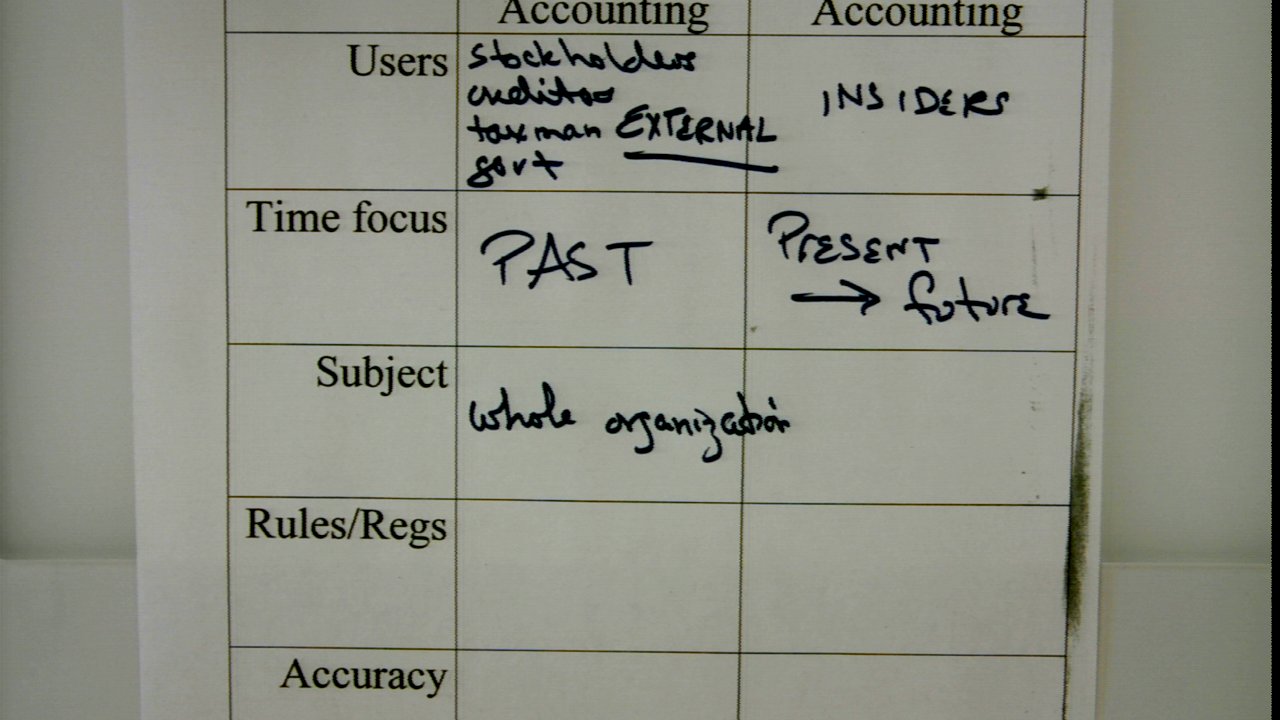 Accounting Accounting
Users
stockholders
creditors
taxman EXTERNAL
govt
INSIDERS
Time focus
PAST
PRESENT
→ future
Subject
whole organization
Rules/Regs
Accuracy